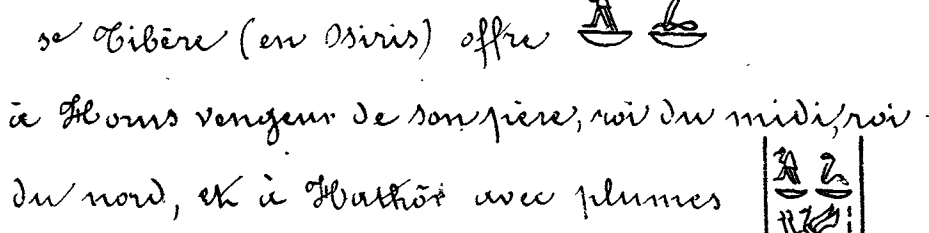 3e Tibère (en Osiris) offre
à Horus vengeur de son père, roi du midi, roi
du nord, et à Hathôr avec plumes